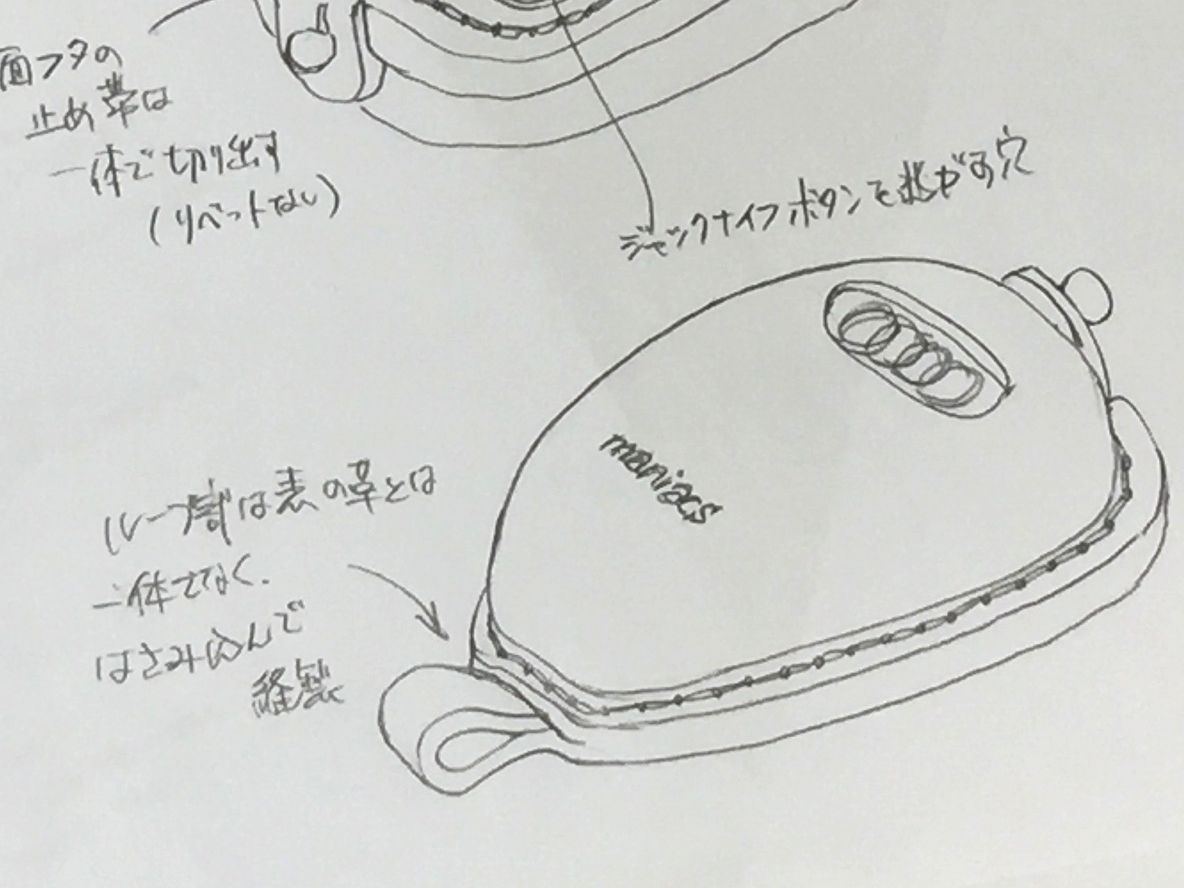 面フタの
止め帯は
一体で切り出す
(リベットなし)
ジャックナイフボタンを逃がす穴
maniacs
ループ部は表の革とは
一体でなく、
はさみ込んで
縫製